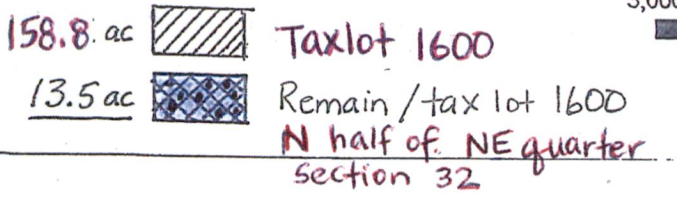 158.8 ac Taxlot 1600
13.5 ac Remain / tax lot 1600
N half of NE quarter
Section 32